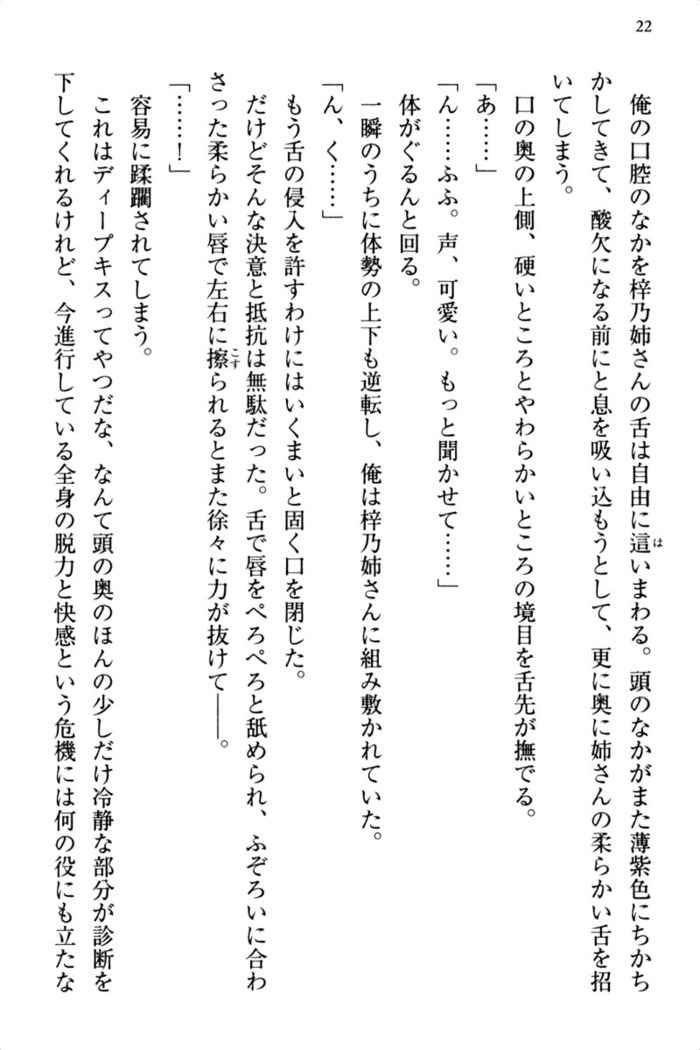 22
俺の口腔のなかを梓乃姉さんの舌は自由に這いまわる。頭のなかがまた薄紫色にちかち
は
かしてきて、酸欠になる前にと息を吸い込もうとして、更に奥に姉さんの柔らかい舌を招
いてしまう。
口の奥の上側、硬いところとやわらかいところの境目を舌先が撫でる。
「あ……」
「ん……ふふ。声、可愛い。もっと聞かせて……」
体がぐるんと回る。
一瞬のうちに体勢の上下も逆転し、俺は梓乃姉さんに組み敷かれていた。
「ん、く……」
もう舌の侵入を許すわけにはいくまいと固く口を閉じた。
だけどそんな決意と抵抗は無駄だった。舌で唇をぺろぺろと舐められ、ふぞろいに合わ
さった柔らかい唇で左右に擦られるとまた徐々に力が抜けて――。
こす
「……！」
容易に蹂躙されてしまう。
これはディープキスってやつだな、なんて頭の奥のほんの少しだけ冷静な部分が診断を
下してくれるけれど、今進行している全身の脱力と快感という危機には何の役にも立たな